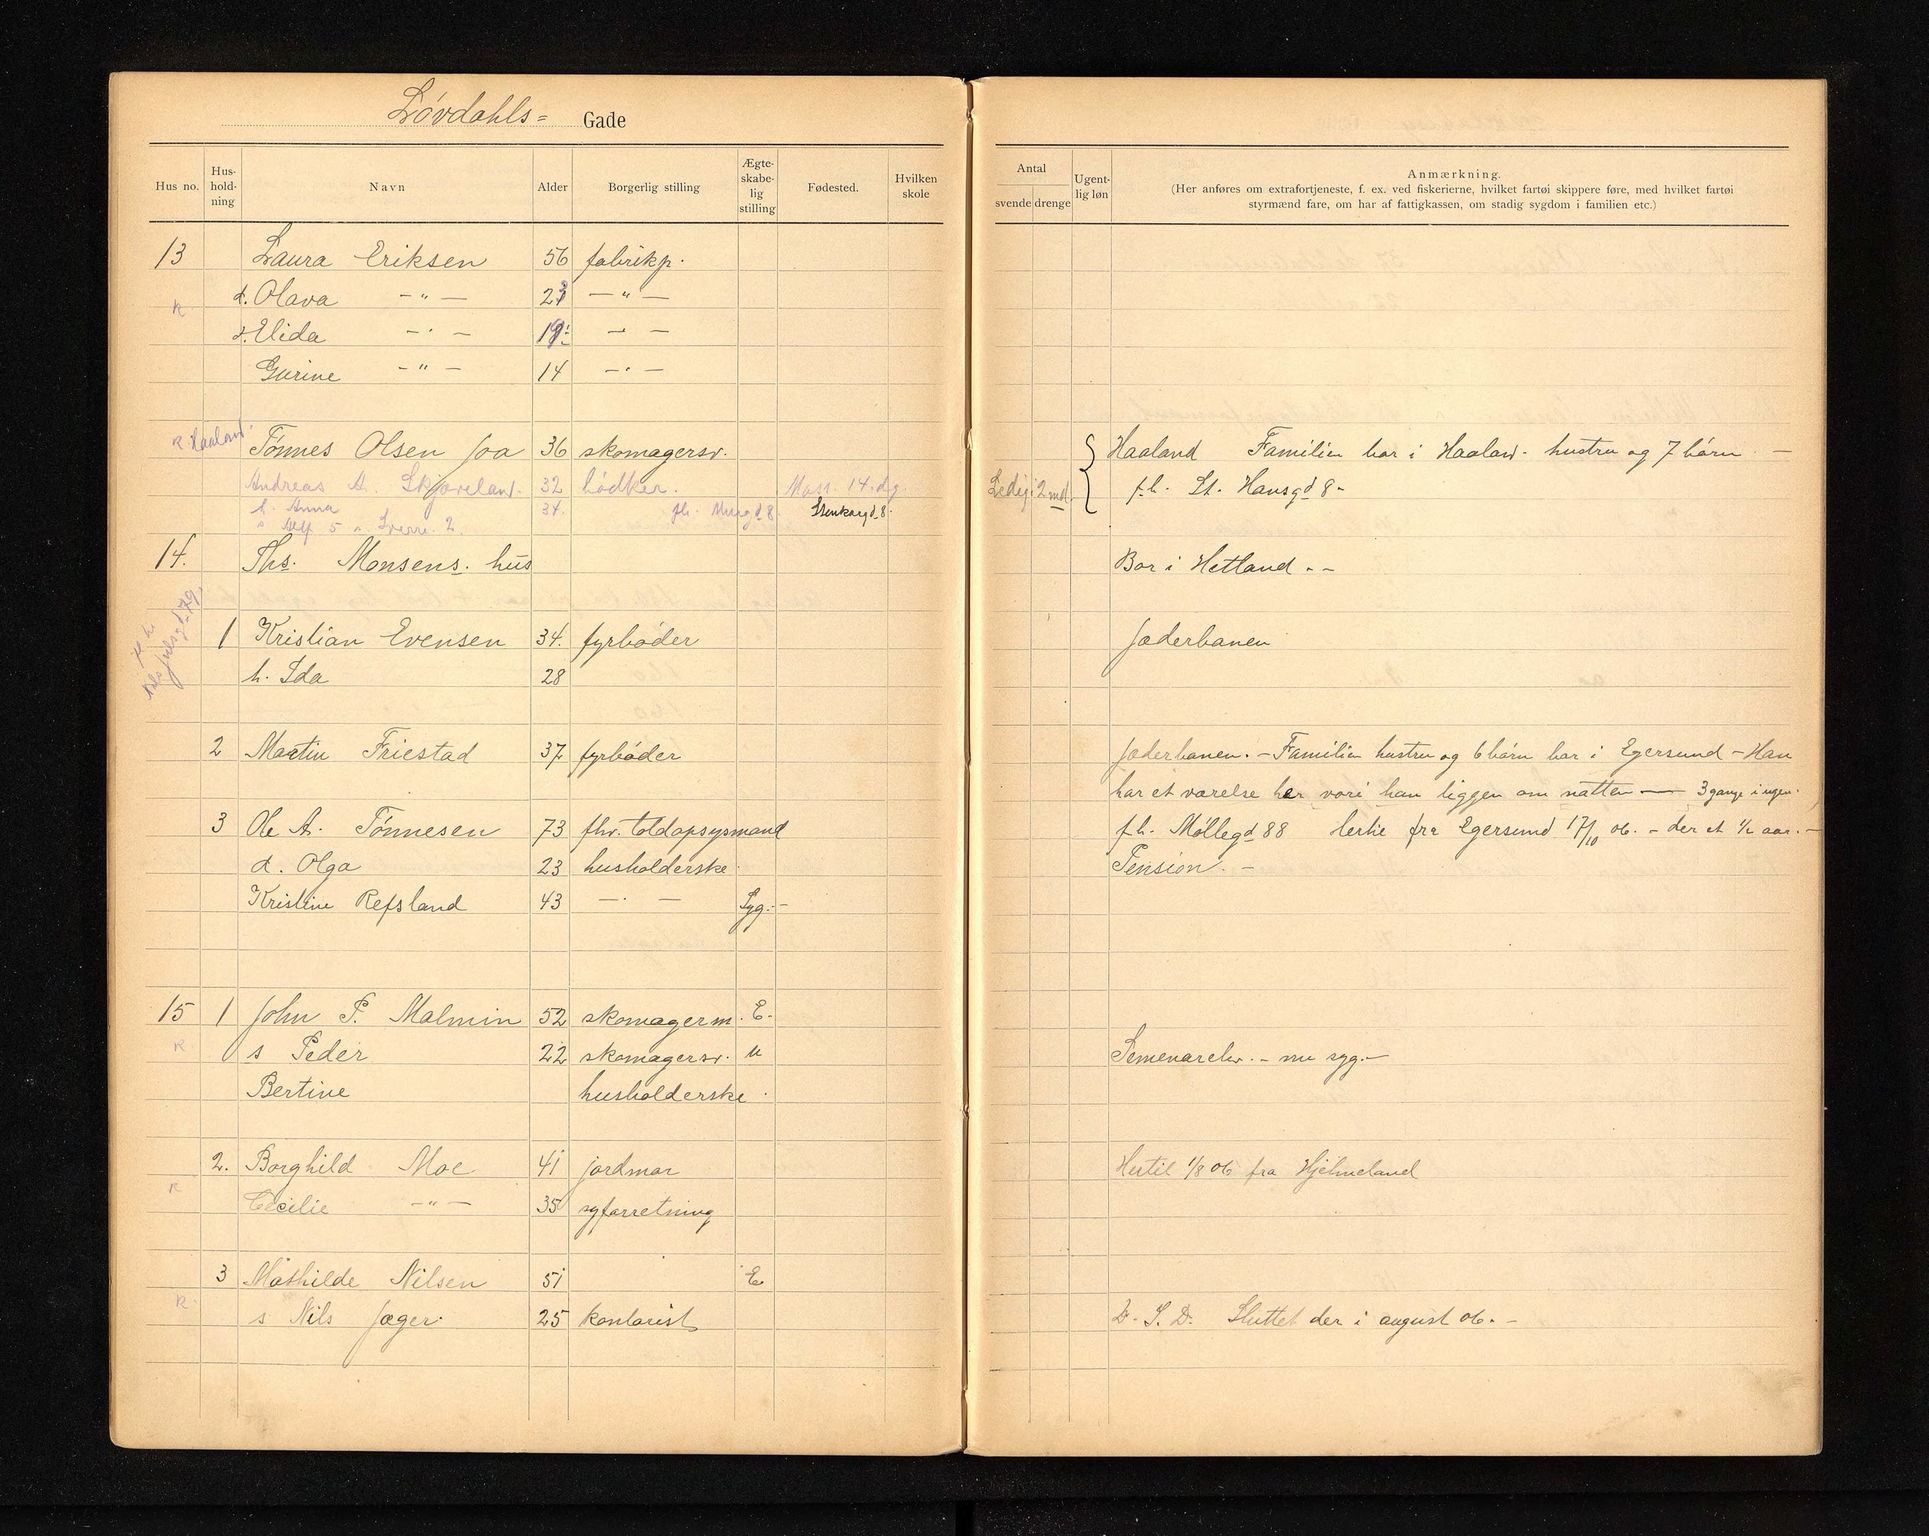 Lövdahls= Gade
Hus no. Hus-hold-ning Navn Alder Borgerlig stilling Ægte-skabe-lig stilling Fødested. Hvilken skole
13 Laura Eriksen 56 fabrikp.
d. Olava — " — 23 — " —
d. Elida — " — 19 — " —
Gurine — " — 14 — " —
R. Haaland Tönnes Olsen Joa 36 skomagersv.
Andreas A. Skjæveland. 32 bödker. Moss. 14. dg.
h. Anna 34. fh. Murgd 8 Stenkargd 8.
s Alf 5 s. Sverre. 2.
14. Ths. Monsens. hus
1 Kristian Evensen 34. fyrböder
h. Ida 28
2 Martin Friestad 37 fyrböder
3 Ole A. Tönnesen 73 fhv. toldopsysmand
d. Olga 23 husholderske
Kristine Refsland 43 — " — Syg. —
15 1 John P. Malmin 52 skomagerm. E.
R s Peder 22 skomagersv. u
Bertine husholderske.
2. Borghild Moe 41 jordmor
R Cecilie — " — 35 syforretning
3 Mathilde Nilsen 51 E
R. s Nils Jæger. 25 kontorist
Antal
svende drenge Ugent-lig løn
Anmærkning.
(Her anføres om extrafortjeneste, f. ex. ved fiskerierne, hvilket fartøi skippere føre, med hvilket fartøi
styrmænd fare, om har af fattigkassen, om stadig sygdom i familien etc.)
Haaland Familien bor i Haaland. hustru og 7 börn. —
Ledig 2 md. f.h. St. Hansgd 8 -
Bor i Hetland. -
Jæderbanen
Jæderbanen. — Familien hustru og 6 börn bor i Egersund — Han
har et værelse her vori han ligger om natten — 3 gange i ugen.
f.h. Möllegd 88 hertil fra Egersund 17/10 06. — der et 1/2 aar. —
Pension. —
Semenarelev. — nu syg. —
Hertil 1/8 06 fra Hjelmeland
D. S. D. Sluttet der i august 06. —